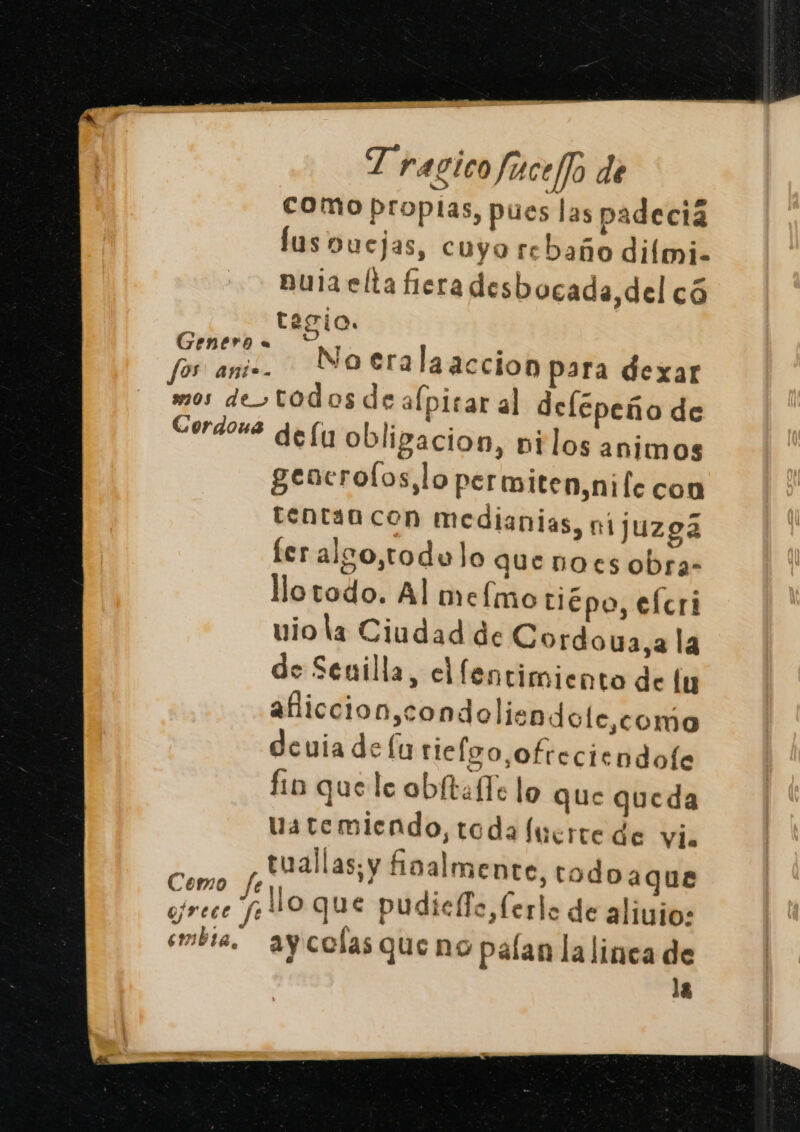 Tragico ſuceſſo de
como propias, pues las padeciã
ſus ouejas, cuyo rebaño diſmi-
nuia eſta fiera desbocada, del cõ
tagio.
Genero-
ſos ani-
mos de
Cordoua
No era la accion para dexar
todos de aſpirar al deſẽpeño de
de ſu obligacion, ni los animos
generoſos, lo permiten, ni ſe con
tentan con medianias, ni juzgã
ſer algo, todo lo que no es obra-
llo todo. Al meſmo tiẽpo, eſcri
uio la Ciudad de Cordoua, a la
de Seuilla, el ſentimiento de ſu
afliccion, condoliendole, como
deuia de ſu rieſgo, ofreciendoſe
ſin que le obſtaſſe lo que queda
ua temiendo, toda ſuerte de vi-
tuallas; y finalmente, todo aque
llo que pudieſſe, ſerle de aliuio:
Como ſe
ofrece ſe
embia.
ay coſas que no paſan la linea de
la